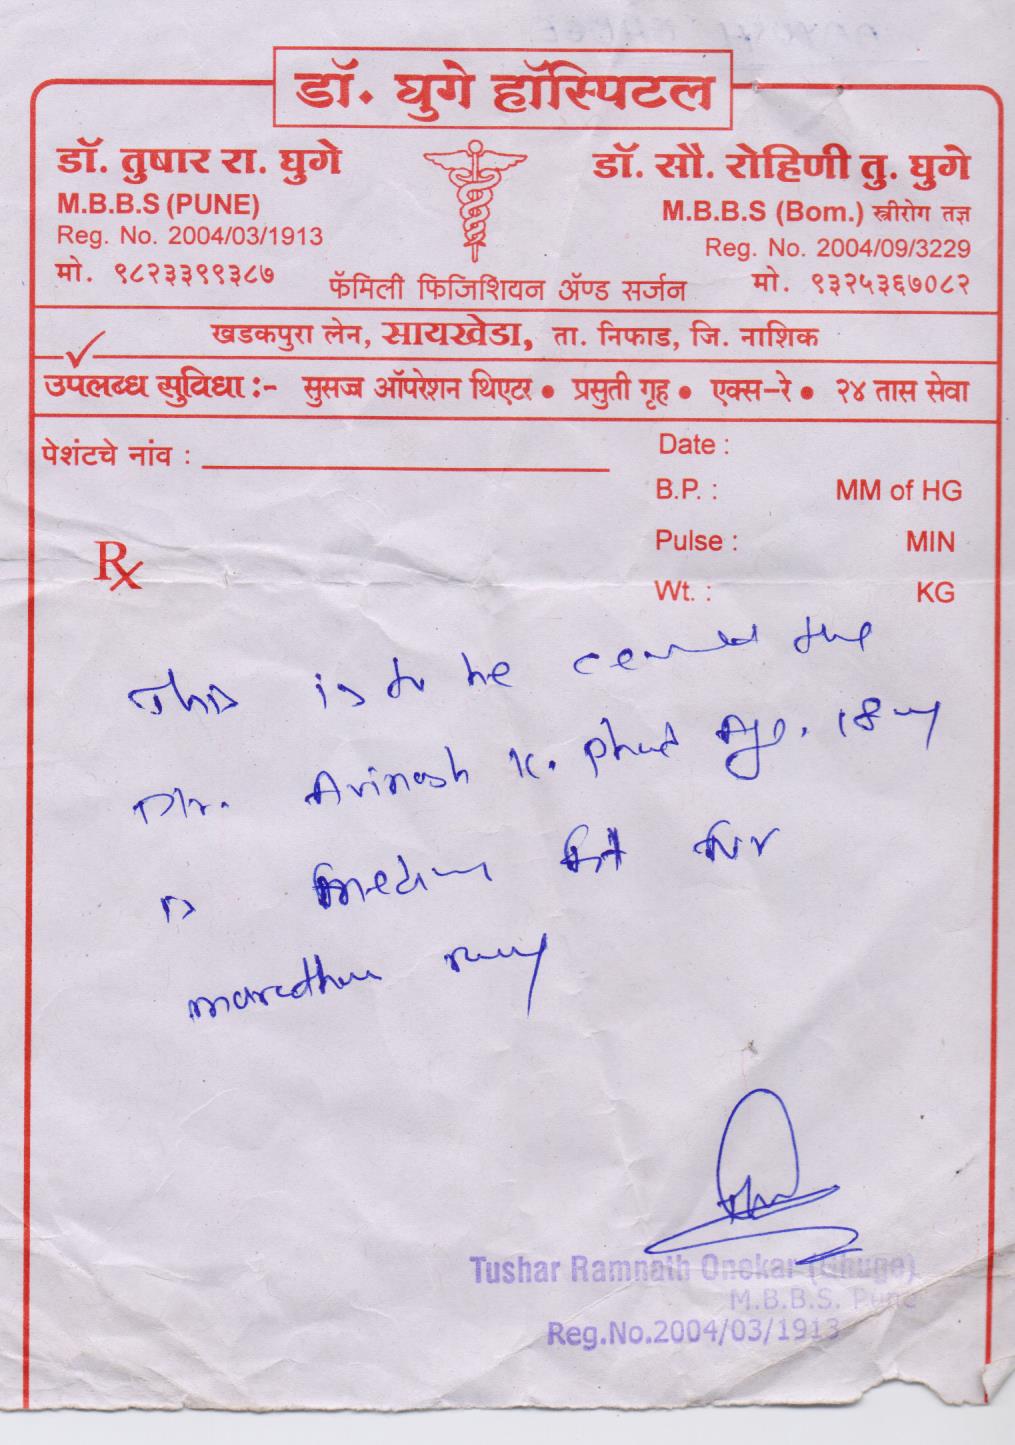 डॉ. घुगे हॉस्पिटल
डॉ. तुषार रा. घुगे
M.B.B.S (PUNE)
Reg. No. 2004/03/1913
मो. ९८२३३९९३८७
डॉ. सौ. रोहिणी तु. घुगे
M.B.B.S (Bom.) स्त्रीरोग तज्ञ
Reg. No. 2004/09/3229
मो. ९३२५३६७०८२
फॅमिली फिजिशियन ॲण्ड सर्जन
खडकपुरा लेन, सायखेडा, ता. निफाड, जि. नाशिक
उपलब्ध सुविधा :- सुसज्ज ऑपरेशन थिएटर ● प्रसुती गृह ● एक्स-रे ● २४ तास सेवा
पेशंटचे नांव :
Date :
B.P. : MM of HG
Pulse : MIN
Wt. : KG
Rx
This is to be the
Mr. Avinash K. Age. 18
is fit for
Tushar Ramnath Onekar (Ghuge)
M.B.B.S. Pune
Reg.No.2004/03/1913